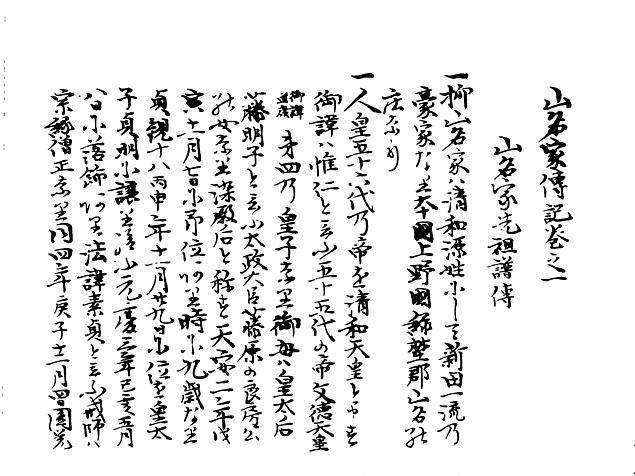 山名家傳記巻之一
山名家先祖譜傳
一抑山名家ハ清和源姓にして新田一流乃
豪家な里本国上野國緑埜郡山名能
庄なり
一人皇五十六代乃帝を清和天皇と申す
御諱ハ惟仁と云ふ五十五代の帝文徳天皇
御諱道康 第四乃皇子な里御母ハ皇太后
藤明子と云ふ太政大臣藤原の良房公
能女な里染殿后と稱す天安二年戊
寅十一月七日に即位阿里時に九歳な里
貞観十八丙申年十一月廿九日に位を皇太
子貞明に譲里給ふ元慶三年己亥五月
八日に落飾阿里法諱素貞と云ふ戒師ハ
宗叡僧正な里同四年庚子十二月四日圓覚